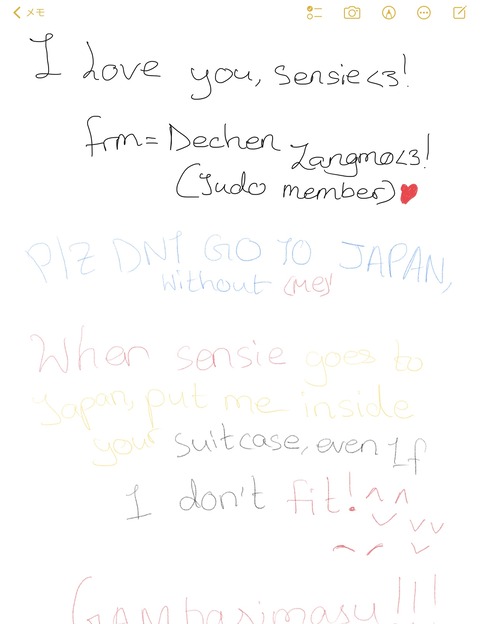 メモ
I love you, Sensie<3!
frm= Dechen Zangmo<3!
(Judo member)
PlZ DNT GO TO JAPAN,
without (ME)
When sensie goes to
Japan, put me inside
your suitcase, even If
I don't fit!^^
Gambarimasu!!!